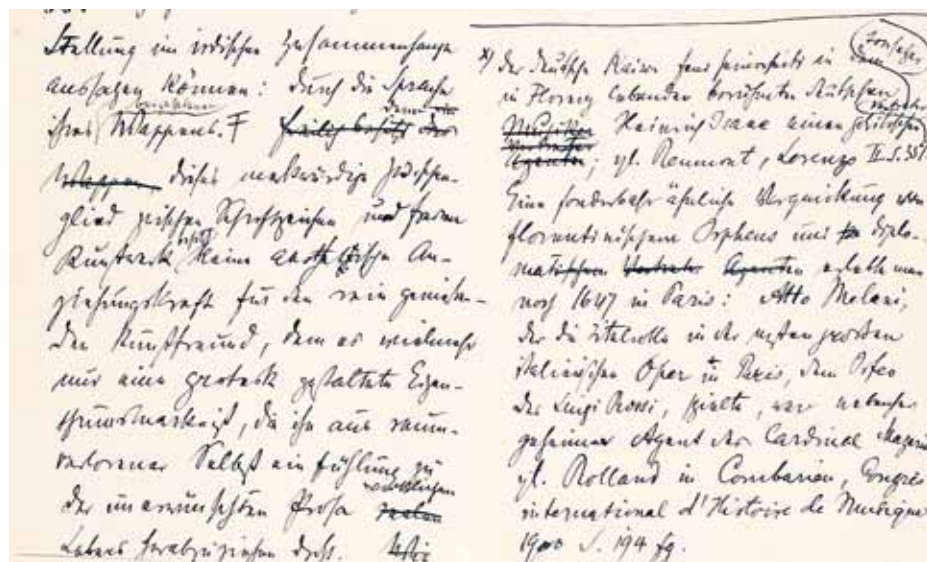 Stellung im irdischen Zusammenhange
aussagen können: durch die Sprache
ihres Wappens. F freilich besitzt
Wappen dieses merkwürdige Zwischen-
glied zwischen Schriftzeichen und freiem
Kunstwerk besitzt keine aesthetische An-
ziehungskraft für den rein genießen-
den Kunstfreund, dem es vielmehr
nur eine grotesk gestaltete Eigen-
thumsmarke ist, die ihn aus raum-
verlorener Selbsteinfühlung zu
der unerwünschten Prosa weltlichen
Lebens herabzuziehen droht.
x) Der deutsche Kaiser fand seinerseits in dem Tonsetzer
in Florenz lebenden berühmten deutschen
Musiker Heinrich Isaac einen politischen Vertreter
Agenten; vgl. Reumont, Lorenzo II. S. 357.
Eine sonderbar ähnliche Verquickung von
florentinischem Orpheus und diplo-
matischem Vertreter Agenten erlebte man
noch 1647 in Paris: Atto Melani,
der die Titelrolle in der ersten grossen
italienischen Oper in Paris, dem Orfeo
des Luigi Rossi, spielte, war nebenher
geheimer Agent des Cardinal Mazarin
vgl. Rolland in Combarieu, Congrès
international d'Histoire de Musique
1900 S. 194 fg.